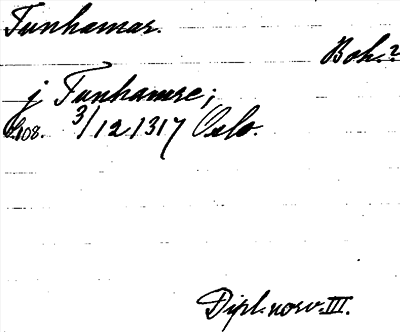 Tunhamar.
Boh.?
j Tunhamre;
S.108. 3/12 1317 Oslo.
Dipl. norv. III.